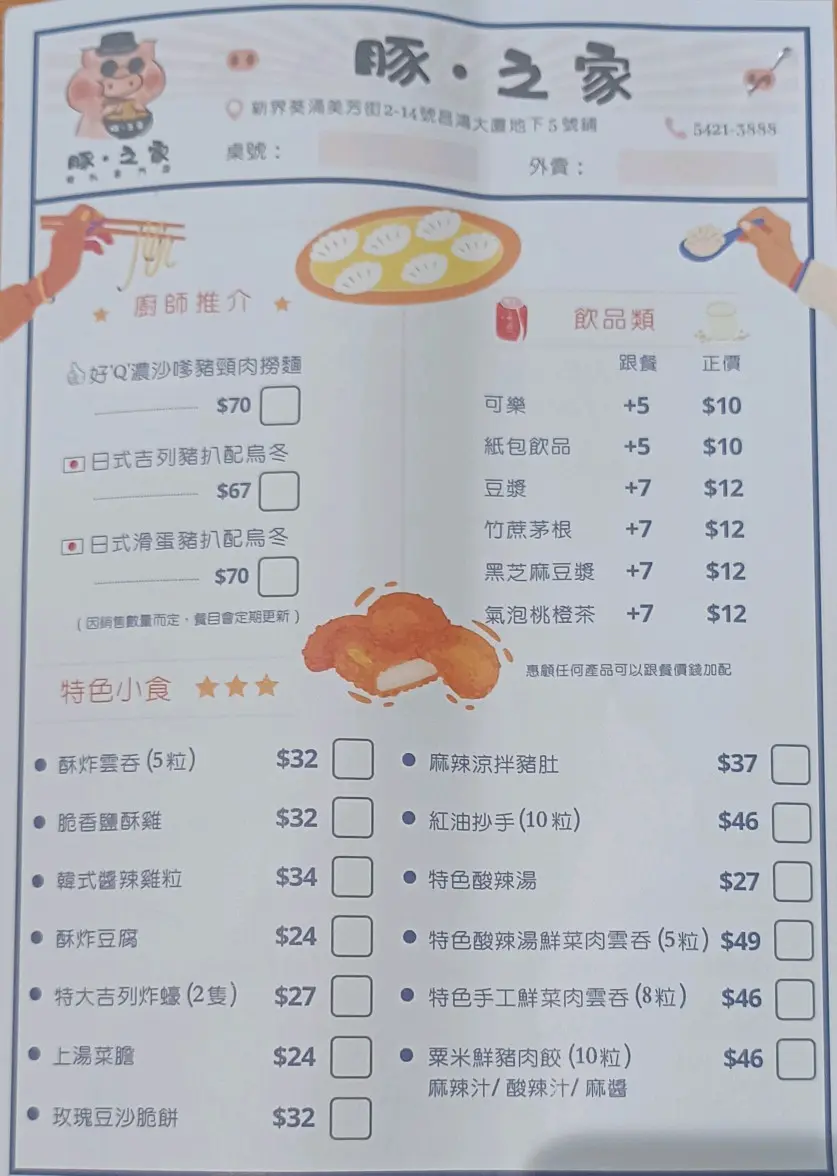 豚・之家
新界葵涌美芳街2-14號昌鴻大廈地下5號鋪
5421-3888
豚・之家
桌號：
外賣：
廚師推介
好'Q'濃沙嗲豬頸肉撈麵
$70
日式吉列豬扒配烏冬
$67
日式滑蛋豬扒配烏冬
$70
(因銷售數量而定，餐目會定期更新)
飲品類
跟餐 正價
可樂 +5 $10
紙包飲品 +5 $10
豆漿 +7 $12
竹蔗茅根 +7 $12
黑芝麻豆漿 +7 $12
氣泡桃橙茶 +7 $12
惠顧任何產品可以跟餐價錢加配
特色小食
酥炸雲吞(5粒) $32
脆香鹽酥雞 $32
韓式醬辣雞粒 $34
酥炸豆腐 $24
特大吉列炸蠔(2隻) $27
上湯菜膽 $24
玫瑰豆沙脆餅 $32
麻辣涼拌豬肚 $37
紅油抄手(10粒) $46
特色酸辣湯 $27
特色酸辣湯鮮菜肉雲吞(5粒) $49
特色手工鮮菜肉雲吞(8粒) $46
粟米鮮豬肉餃(10粒) $46
麻辣汁/酸辣汁/麻醬